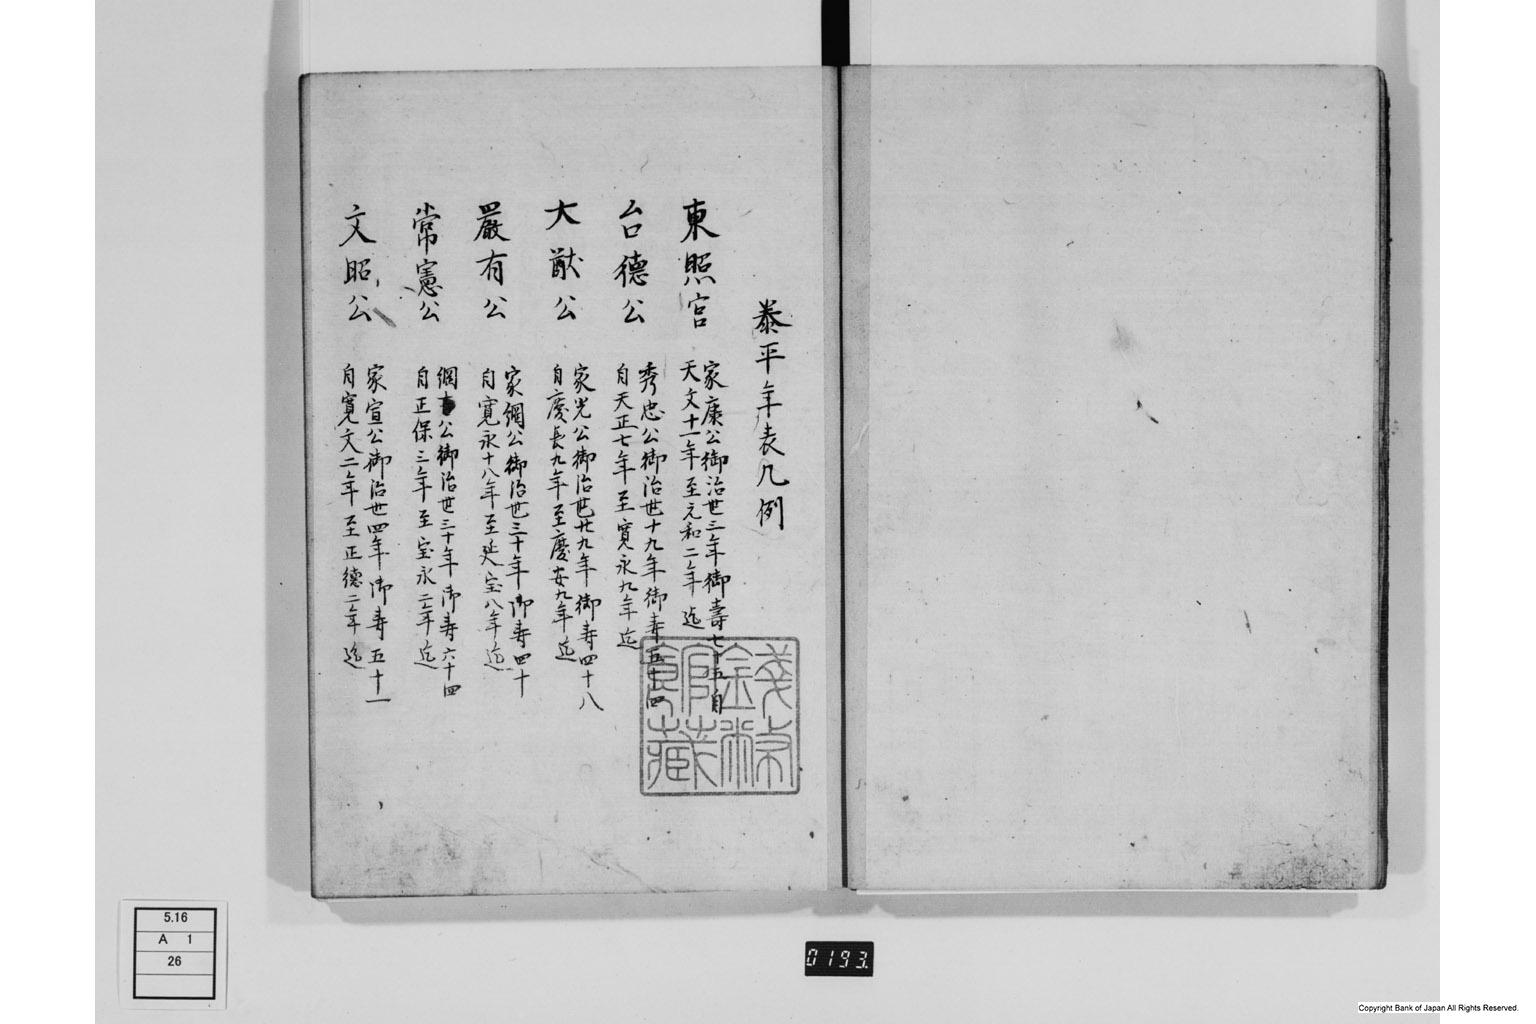 泰平年表凡例
東照宮
家康公御治世三年御壽七十五自
天文十一年至元和二年迄
台德公
秀忠公御治世十九年御寿五十四
自天正七年至寛永九年迄
大猷公
家光公御治世廿九年御寿四十八
自慶長九年至慶安九年迄
嚴有公
家綱公御治世三十年御寿四十
自寛永十八年至延宝八年迄
常憲公
綱公御治世三十年御寿六十四
自正保三年至宝永二年迄
文昭公
家宣公御治世四年御寿五十一
自寛文二年至正德二年迄
錢幣館藏
5.16
A 1
26
0193
Copyright Bank of Japan All Rights Reserved.